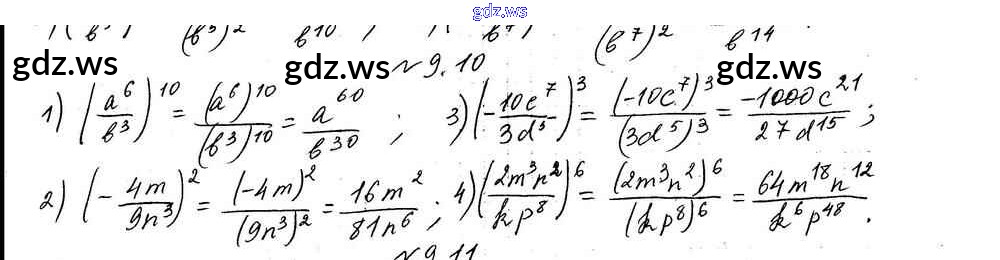 gdz.ws
(b⁵)² b¹⁰ , (b⁷)² b¹⁴
gdz.ws №9.10 gdz.ws
1) (a⁶/b³)¹⁰ = (a⁶)¹⁰/(b³)¹⁰ = a⁶⁰/b³⁰ ; 3) (-10c⁷/3d⁵)³ = (-10c⁷)³/(3d⁵)³ = -1000c²¹/27d¹⁵ ;
2) (-4m/9n³)² = (-4m)²/(9n³)² = 16m²/81n⁶ ; 4) (2m³n²/kp⁸)⁶ = (2m³n²)⁶/(kp⁸)⁶ = 64m¹⁸n¹²/k⁶p⁴⁸ .
№9.11